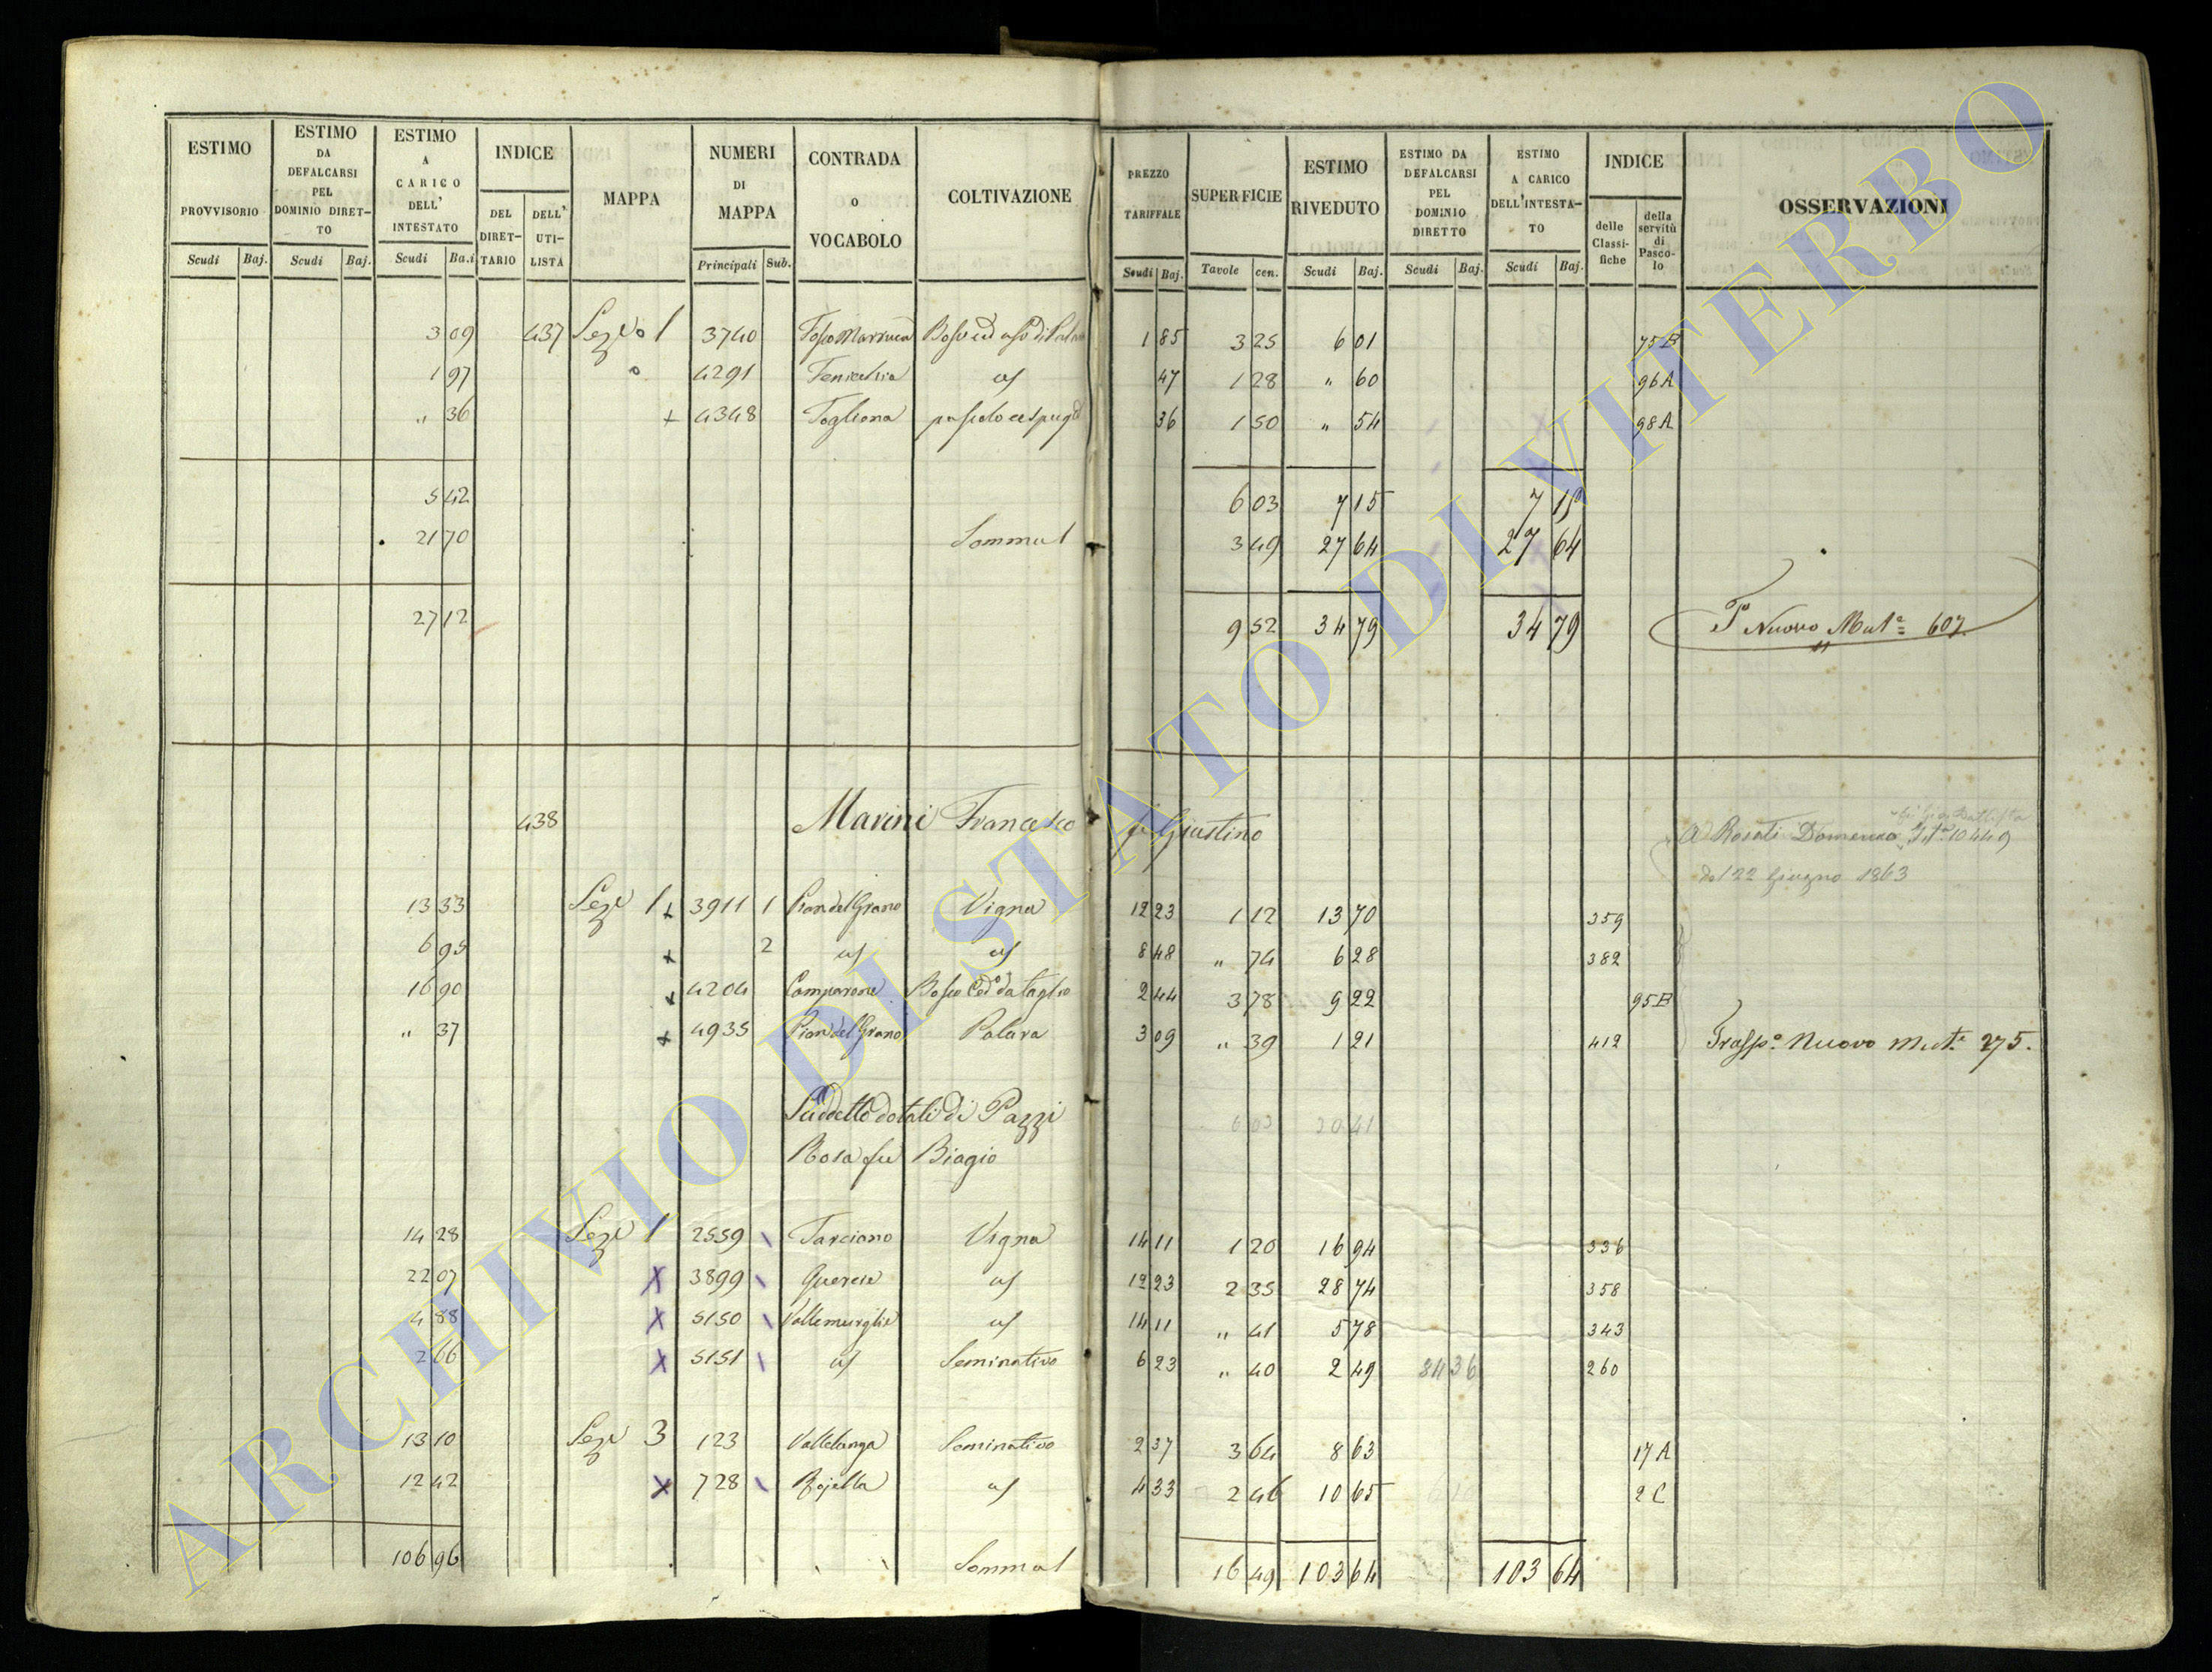 ESTIMO PROVVISORIO Scudi Baj.
ESTIMO DA DEFALCARSI PEL DOMINIO DIRETTO Scudi Baj.
ESTIMO A CARICO DELL' INTESTATO Scudi Ba.i
INDICE DEL DIRETTARIO DELL' UTILISTA
MAPPA
NUMERI DI MAPPA Principali Sub.
CONTRADA o VOCABOLO
COLTIVAZIONE
PREZZO TARIFFALE Scudi Baj.
SUPERFICIE Tavole cen.
ESTIMO RIVEDUTO Scudi Baj.
ESTIMO DA DEFALCARSI PEL DOMINIO DIRETTO Scudi Baj.
ESTIMO A CARICO DELL'INTESTATO Scudi Baj.
INDICE delle Classifiche della servitù di Pascolo
OSSERVAZIONI
3 09 437 Seze 1 3740 1 85 3 25 6 01 75 B
1 97 4291 47 1 28 " 60 96 A
" 36 + 4348 Fogliona pascolo cespug 36 1 50 " 54 98 A
5 42 6 03 7 15 7 15
21 70 Somma 3 49 27 64 27 64
27 12 9 52 34 79 34 79 Tº Nuovo Mutª 607.
438 Marini Francesco q Giustino A Rosati Domenico 10449
del 22 Giugno 1863
13 33 Seze 1 + 3911 1 Pian del Grano Vigna 12 23 1 12 13 70 359
6 95 + 2 8 48 " 74 6 28 382
16 90 + 4204 Camparone Bosco Ced da taglio 2 44 3 78 9 22 95 B
" 37 + 4935 Pian del Grano 3 09 " 39 1 21 412 Traspº Nuovo Mutª 275.
Suddetto dotali di Pazzi 6 03 30 41
Rosa fu Biagio
14 28 Seze 1 2559 Tarciano Vigna 14 11 1 20 16 94 336
22 07 X 3899 Quercie 12 23 2 35 28 74 358
4 88 X 5150 14 11 " 41 5 78 343
2 66 X 5151 Seminativo 6 23 " 40 2 49 84 36 260
13 10 Seze 3 123 Vallelunga Seminativo 2 37 3 64 8 63 17 A
12 42 X 728 Rojella 4 33 2 46 10 65 2 C
106 96 Somma 16 49 103 64 103 64
ARCHIVIO DI STATO DI VITERBO